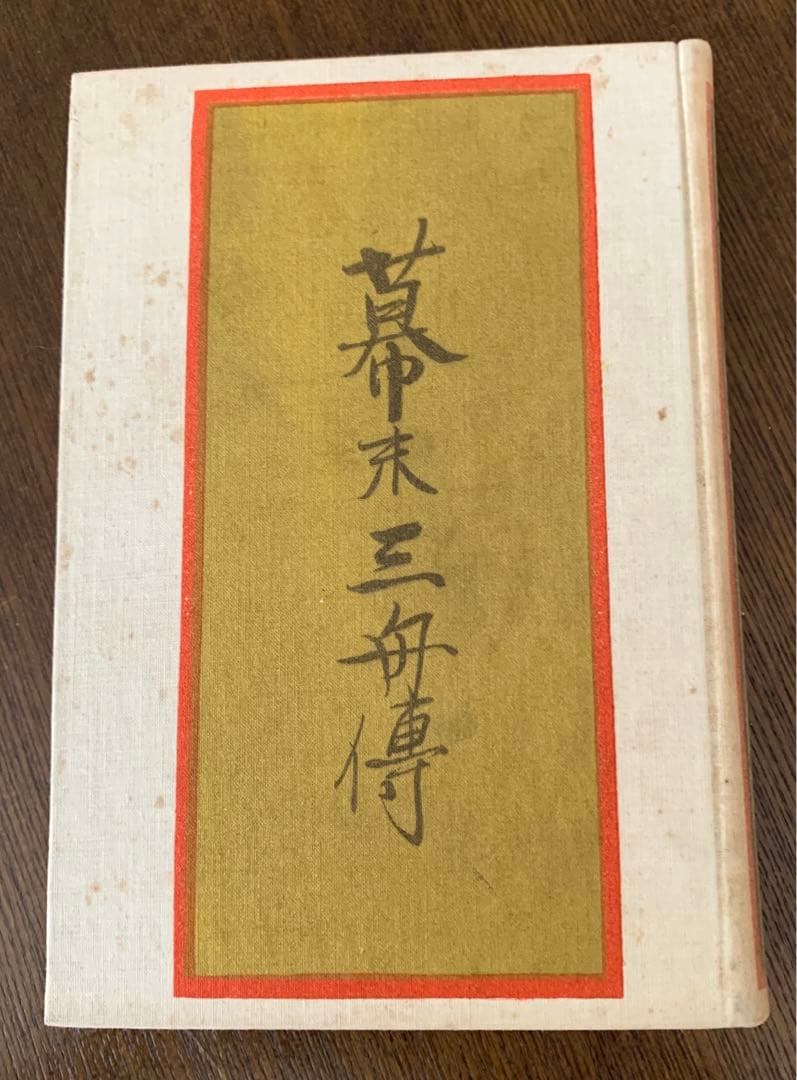 幕末三舟傳